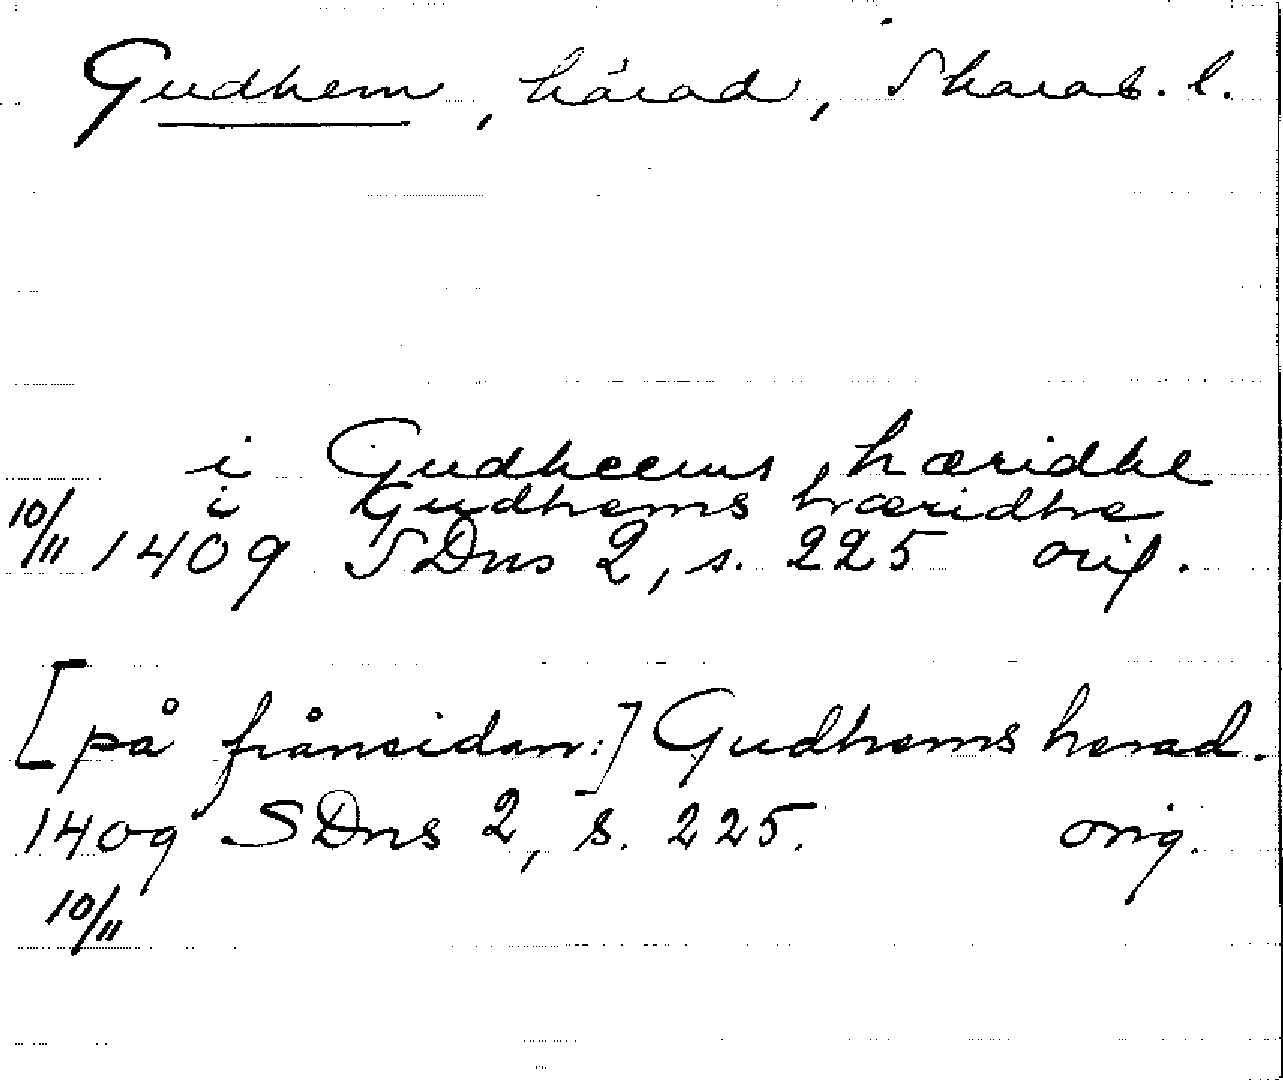 Gudhem, härad, Skarab. l.
i Gudheems hæridhe
i Gudhems hæridhe
10/11 1409 SDns 2, s. 225 orig.
[på frånsidan:] Gudhems herad.
1409 SDns 2, s. 225. orig.
10/11